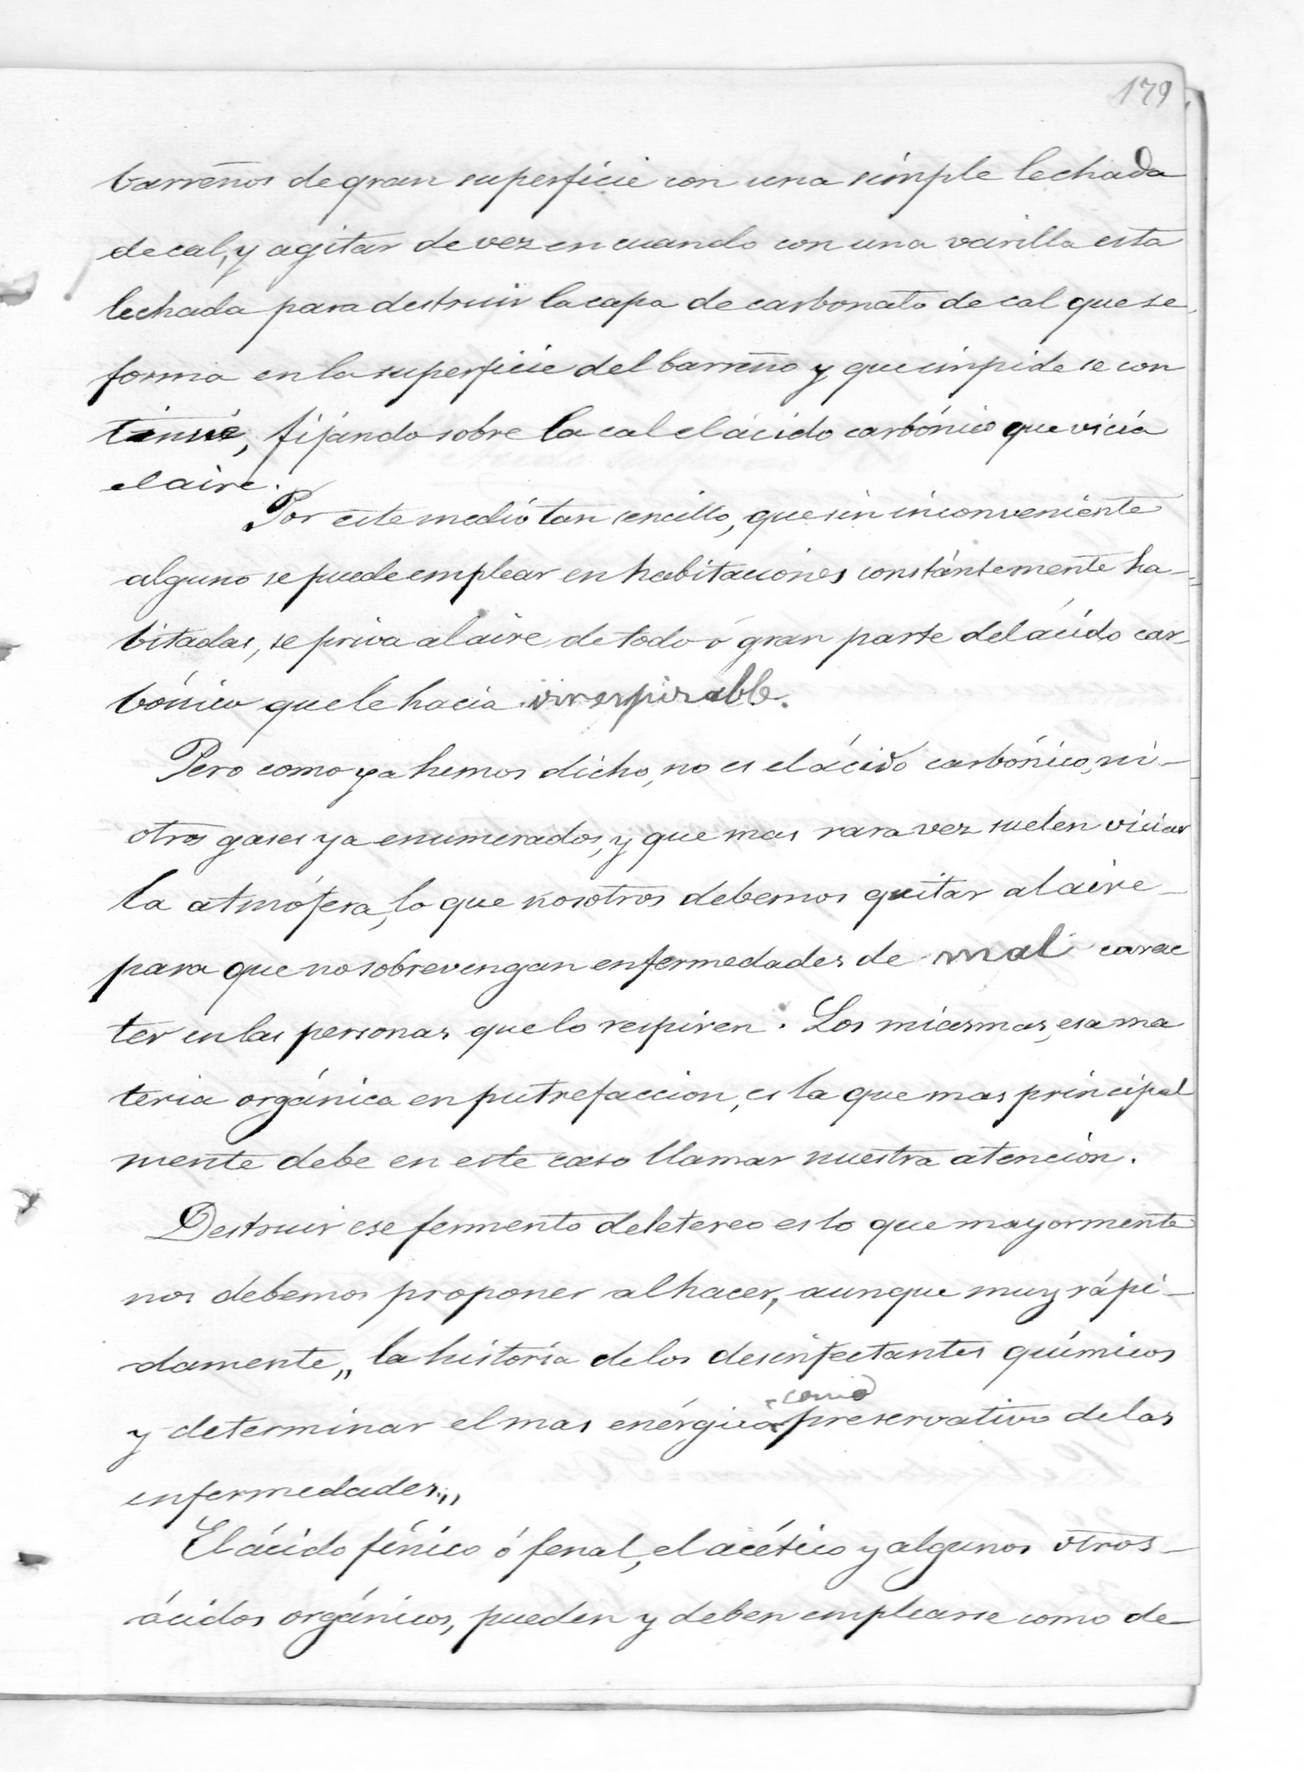 179
barreños de gran superficie con una simple lechada
de cal, y agitar de vez en cuando con una varilla esta
lechada para destruir la capa de carbonato de cal que se
forma en la superficie del barreño y que impide se con
tinué, fijando sobre la cal el ácido carbónico que vicia
el aire.
Por este medio tan sencillo, que sin inconveniente
alguno se puede emplear en habitaciones constántemente ha-
bitadas, se priva al aire de todo ó gran parte del ácido car-
bónico que le hacia irrespirable.
Pero como ya hemos dicho, no es el ácido carbónico, ni-
otros gases ya enumerados, y que mas rara vez suelen viciar
la atmósfera, lo que nosotros debemos quitar al aire-
para que no sobrevengan enfermedades de mal carac
ter en las personas que lo respiren. Los miasmas, esa ma
teria orgánica en putrefaccion, es la que mas principal
mente debe en este caso llamar nuestra atención.
Destruir ese fermento deletereo es lo que mayormente
nos debemos proponer al hacer, aunque muy rápi-
damente „ la historia de los desinfectantes químicos
como
y determinar el mas enérgico preservativo de las
enfermedades „
El ácido fénico ó fenal, el acético y algunos otros-
ácidos orgánicos, pueden y deben emplearse como de-